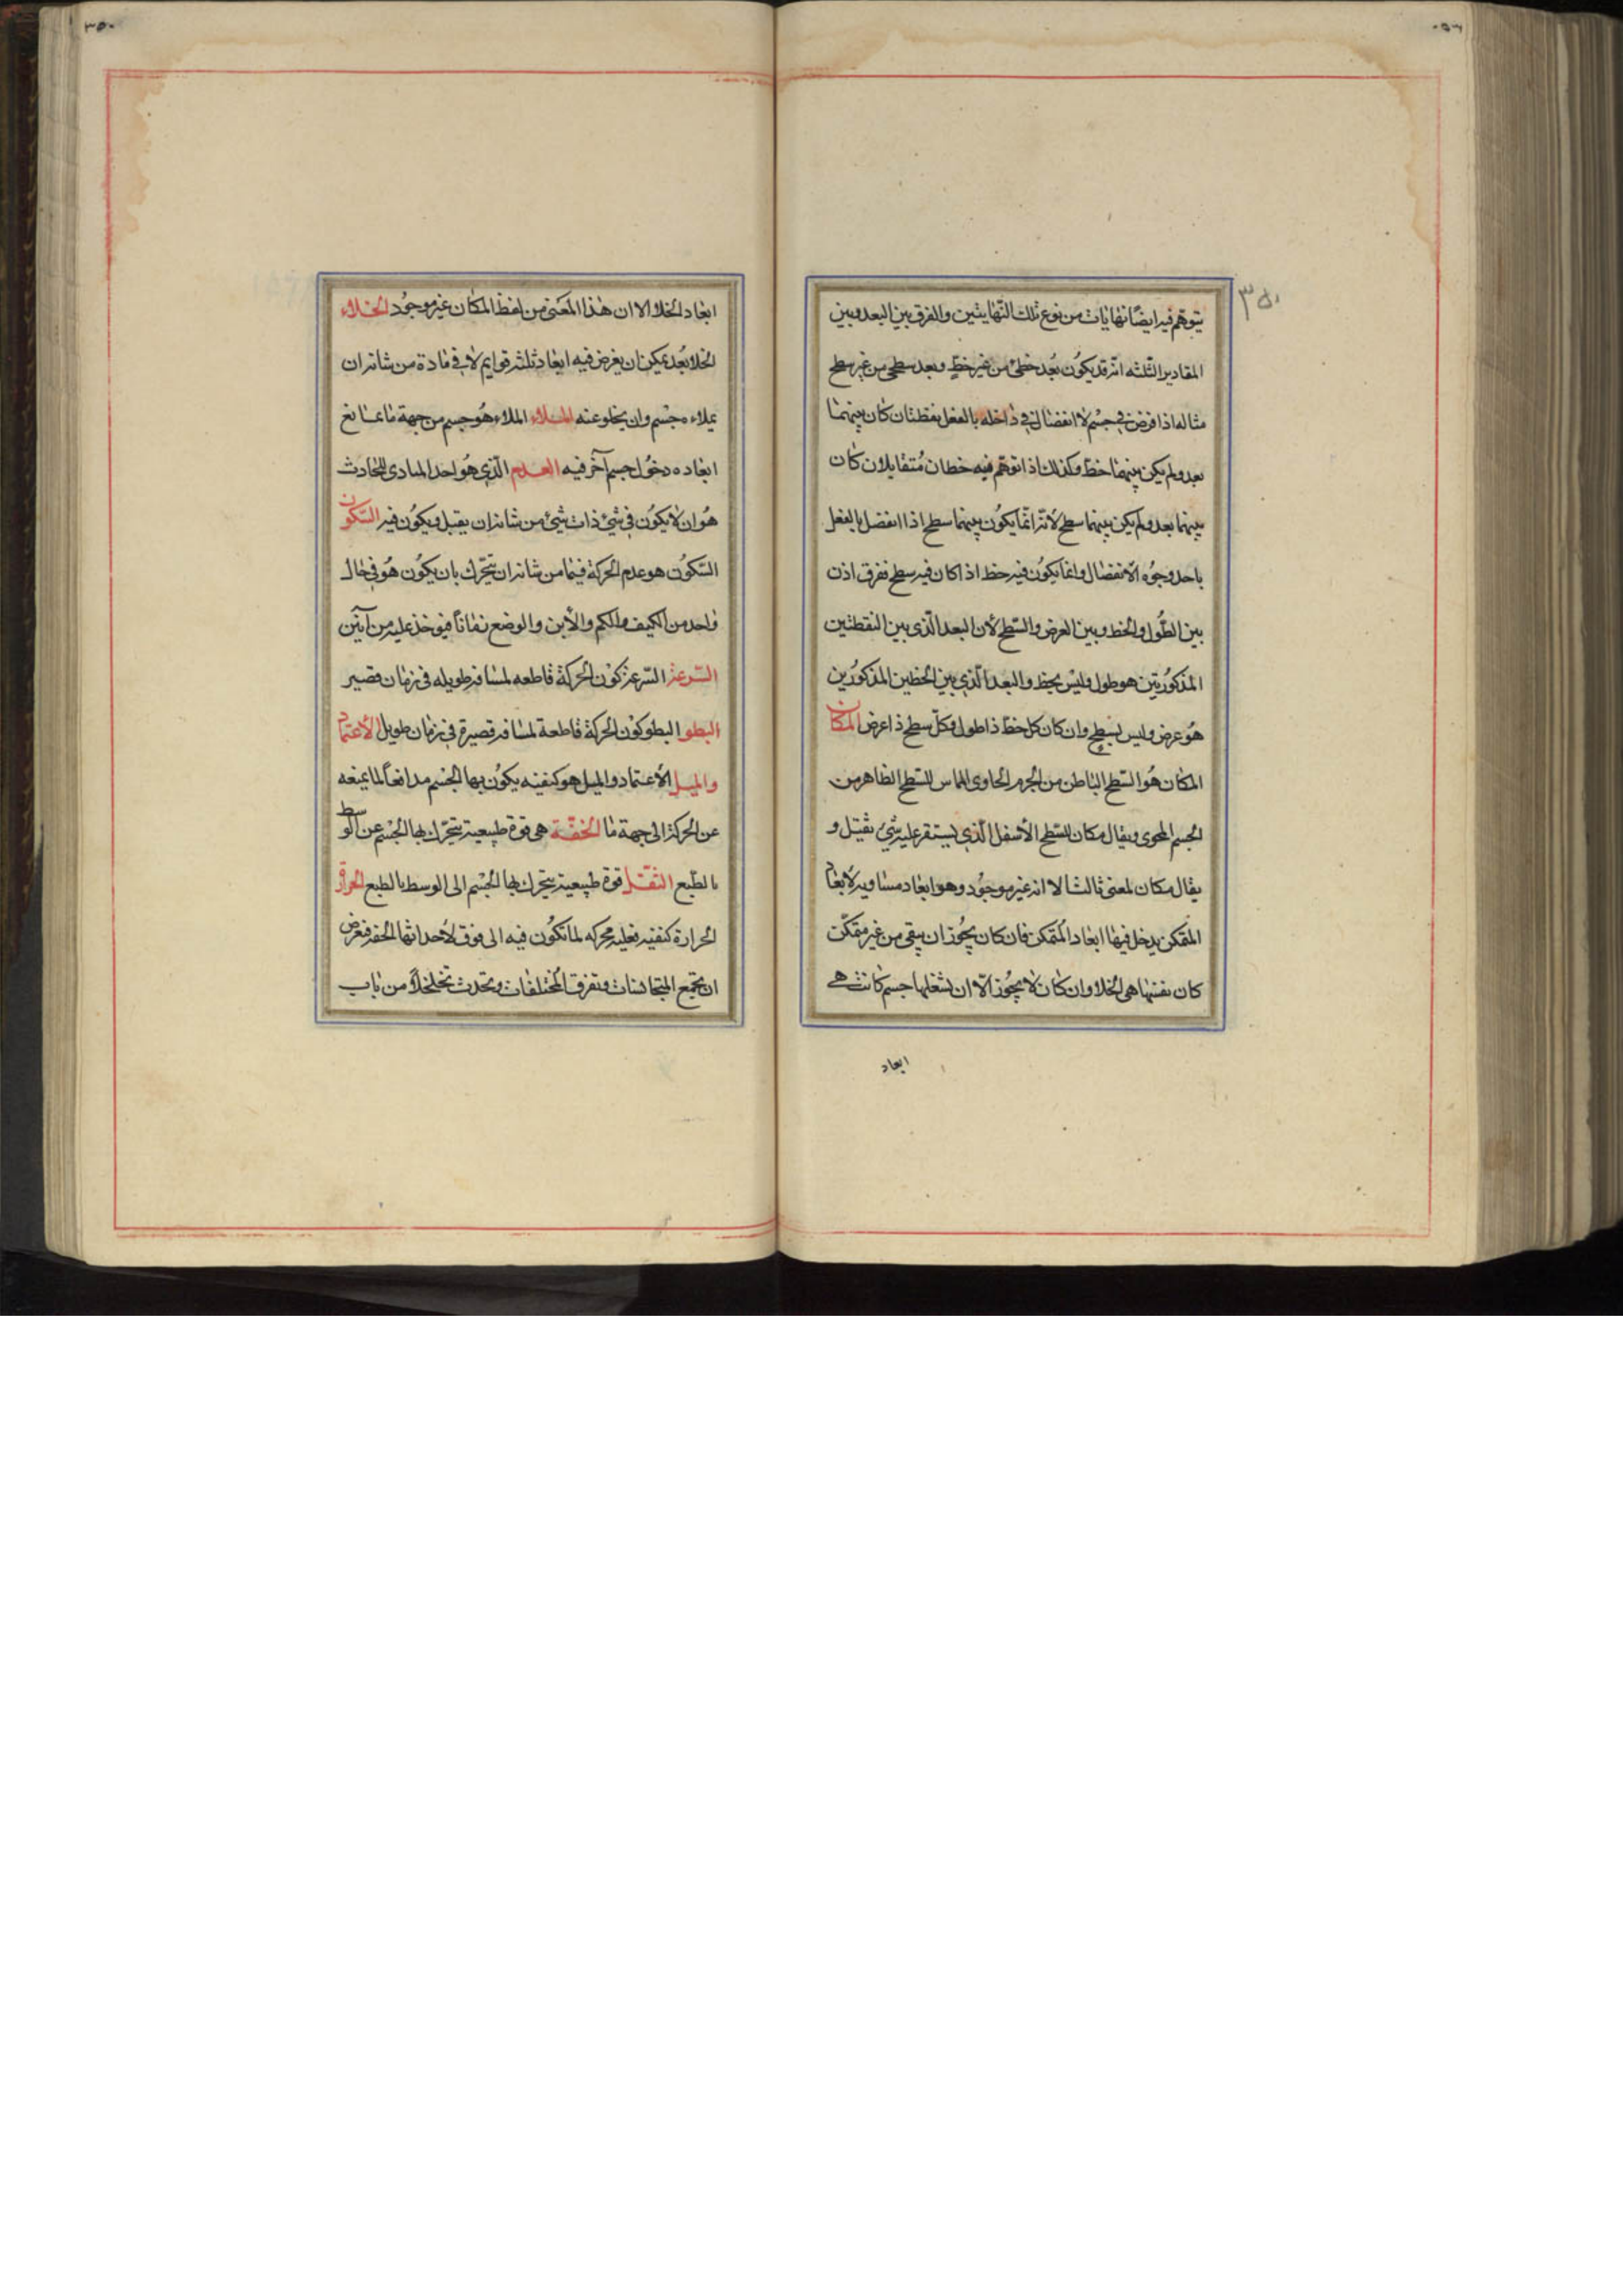 ٣٥٠
يتوهم فيه ايضا نهايات من نوع تلك النهايتين والفرق بين البعد وبين
المقادير الثلثه انه قد يكون بُعد خطى من غير خط وبعد سطحى من غير سطح
مثاله اذا فرض فى جسْم لا انفصال فى داخله بالفعل نقطتان كان بينهما
بعد ولم يكن بينهما خط وكذلك اذا توهم فيه خطان مُتقابلان كان
بينهما بعد ولم يكن بينهما سطح لانه انما يكون بينهما سطح اذا انفصل بالفعل
باحد وجُوه الانفصال وانما يكون فيه خط اذا كان فيه سطح ففرق اذن
بين الطُول والخط وبين العرض والسّطح لأن البعد الّذى بين النقطتين
المذكورتين هو طول وليْس بخط والبعد الّذى بين الخطين المذكورين
هُو عرض وليس بسطح وان كان كل خط ذا طول وكلّ سطح ذا عرض المكان
المكان هُو السّطح الباطن من الجرم الحاوى المماس للسّطح الظاهر من
الجسم المحوى ويقال مكان للسّطح الأسفل الّذى يستقر عليه شئ ثقيل و
يقال مكان لمعنى ثالث الا انه غير موجُود وهو ابعاد مساويه لأبعاد
المتمكن يدخل فيها ابعاد المُتمكن فان كان يجُوز ان يبقى من غير متمكّن
كان نفسها هى الخلا وان كان لا يجُوز الّا ان يشغلها جسم كانت هى
ابعاد
ابعاد الخلا الا ان هذا المعنى من لفظ المكان غير موجُود الخلاء
الخلا بُعد يمكن ان يفرض فيه ابعاد ثلثه قوايم لا فى مادة من شانه ان
يملاءه جسْم وان يخلو عنه الملاء الملاء هُو جسم من جهة ما تمانع
ابعاده دخُول جسم آخر فيه العدم الّذى هُو احد المبادى للحادث
هُو ان لا يكون فى شئ ذات شئ من شانه ان يقبل ويكون فيه السّكون
السّكون هو عدم الحركة فيما من شانه ان يتحرّك بان يكون هُو فى حال
واحد من الكيف والكم والأين والوضع زماناً فيوخذ عليه من آنين
السّرعة السّرعة كون الحركة قاطعه لمسافه طويله فى زمان قصير
البطو البطو كون الحركة قاطعة لمسافه قصيرة فى زمان طويل الأعتماد
والميل الأعتماد والميل هو كيفيه يكون بها الجسْم مدافعاً لما يمنعه
عن الحركة الى جهة ما الخفّة هى قوة طبيعيه يتحرّك بها الجسْم عن الوسط
بالطّبع الثقل قوة طبيعية يتحرك بها الجسْم الى الوسط بالطبع الحرارة
الحرارة كيفيه فعليه محركه لما تكون فيه الى فوق لأحداثها الخفه فعرض
ان تجمع المتجانسات وتفرق المختلفات وتحدث تخلخلاً من باب